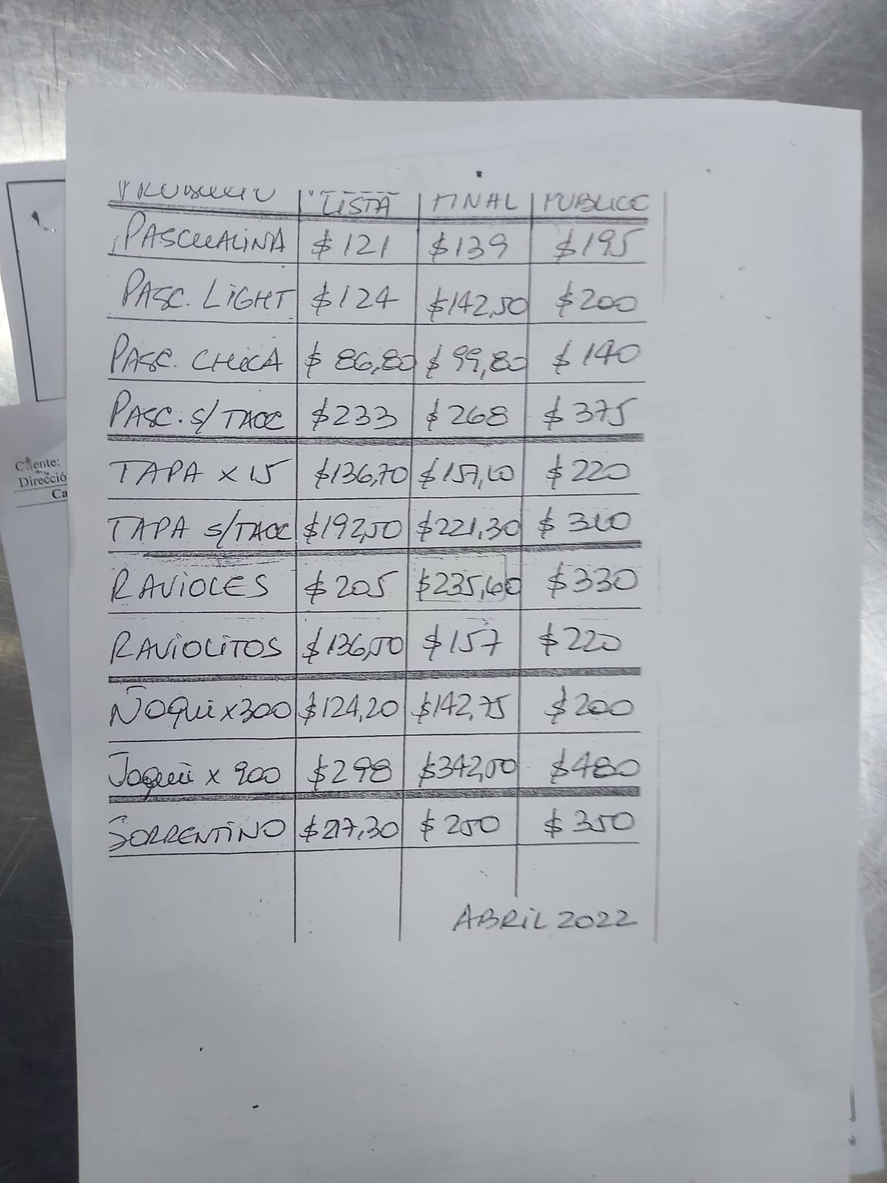 PRODUCTO LISTA FINAL PUBLICO
PASCUALINA $121 $139 $195
PASC. LIGHT $124 $142,50 $200
PASC. CHICA $86,80 $99,80 $140
PASC. S/TACC $233 $268 $375
TAPA X 15 $136,70 $157,10 $220
TAPA S/TACC $192,50 $221,30 $310
RAVIOLES $205 $235,60 $330
RAVIOLITOS $136,50 $157 $220
ÑOQUI X300 $124,20 $142,75 $200
Ñoqui x 900 $298 $342,00 $480
SORRENTINO $217,30 $250 $350
ABRIL 2022
Cliente:
Direcció
Ca